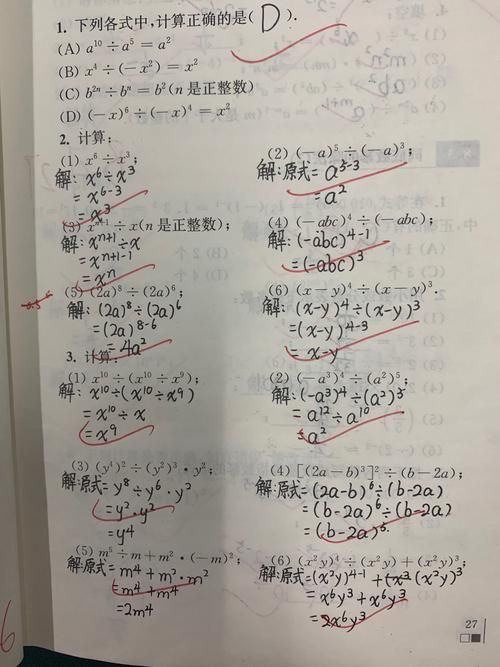 1. 下列各式中,计算正确的是( D ).
(A) a¹⁰÷a⁵=a²
(B) x⁴÷(-x²)=x²
(C) b²ⁿ÷bⁿ=b²(n是正整数)
(D) (-x)⁶÷(-x)⁴=x²
2. 计算:
(1) x⁶÷x³;
解: x⁶÷x³
=x⁶⁻³
=x³
(2) (-a)⁵÷(-a)³;
解:原式=a⁵⁻³
=a²
(3) xⁿ⁺¹÷x(n是正整数);
解: xⁿ⁺¹÷x
=xⁿ⁺¹⁻¹
=xⁿ
(4) (-abc)⁴÷(-abc);
解: (-abc)⁴⁻¹
=(-abc)³
(5) (2a)⁸÷(2a)⁶;
解: (2a)⁸÷(2a)⁶
=(2a)⁸⁻⁶
=4a²
(6) (x-y)⁴÷(x-y)³.
解: (x-y)⁴÷(x-y)³
=(x-y)⁴⁻³
=x-y
3. 计算:
(1) x¹⁰÷(x¹⁰÷x⁹);
解: x¹⁰÷(x¹⁰÷x⁹)
=x¹⁰÷x
=x⁹
(2) (-a³)⁴÷(a²)⁵;
解: (-a³)⁴÷(a²)⁵
=a¹²÷a¹⁰
=a²
(3) (y⁴)²÷(y²)³·y²;
解:原式=y⁸÷y⁶·y²
=y²·y²
=y⁴
(4) [(2a-b)³]²÷(b-2a);
解:原式=(2a-b)⁶÷(b-2a)
=(b-2a)⁶÷(b-2a)
=(b-2a)⁵.
(5) m⁵÷m+m²·(-m)²;
解:原式=m⁴+m²·m²
=m⁴+m⁴
=2m⁴
(6) (x²y)⁴÷(x²y)+(x²y)³.
解:原式=(x²y)⁴⁻¹+(x²y)³
=x⁶y³+x⁶y³
=2x⁶y³
27